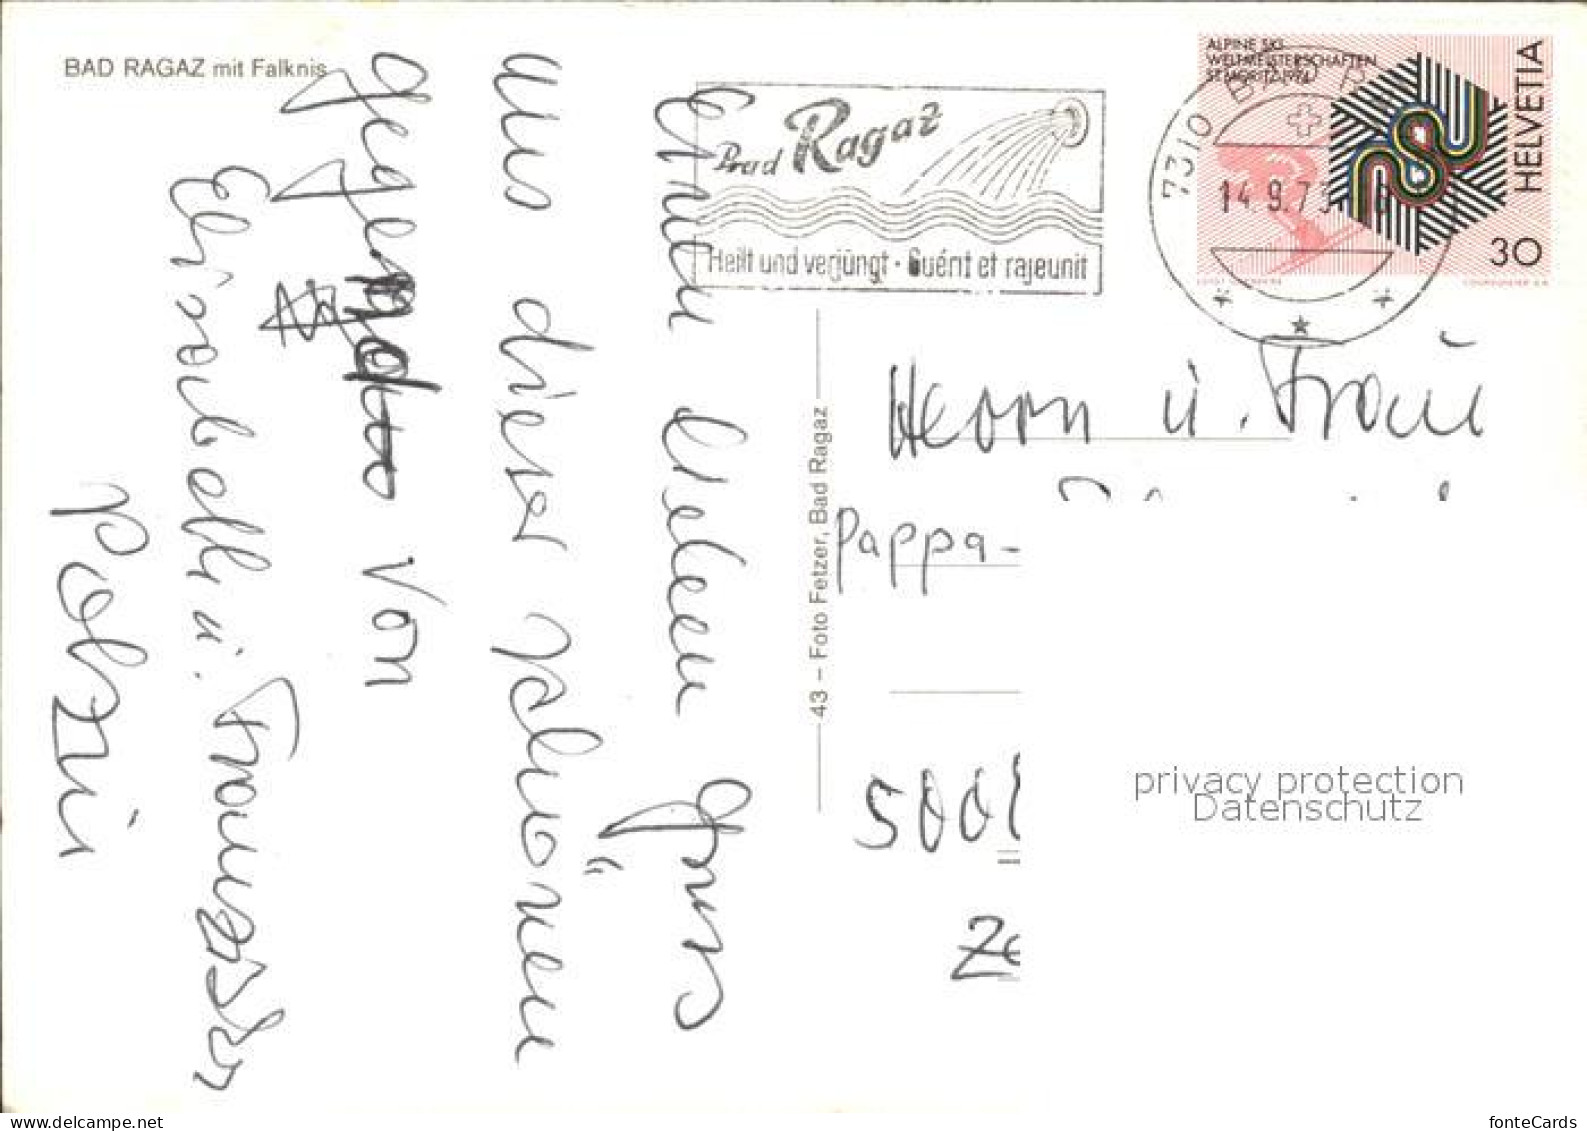 BAD RAGAZ mit Falknis
Einen lieben Gruss
aus dieser schönen
Gegend von
Elisabeth u.
43 – Foto Fetzer, Bad Ragaz
Bad Ragaz
Heilt und verjüngt · Guérit et rajeunit
7310 BAD R
14.9.73
ALPINE SKI
WELTMEISTERSCHAFTEN
ST. MORITZ 1974
HELVETIA
30
COURVOISIER S.A.
Herrn u. Frau
Pappa-
500
privacy protection
Datenschutz
www.delcampe.net
fonteCards